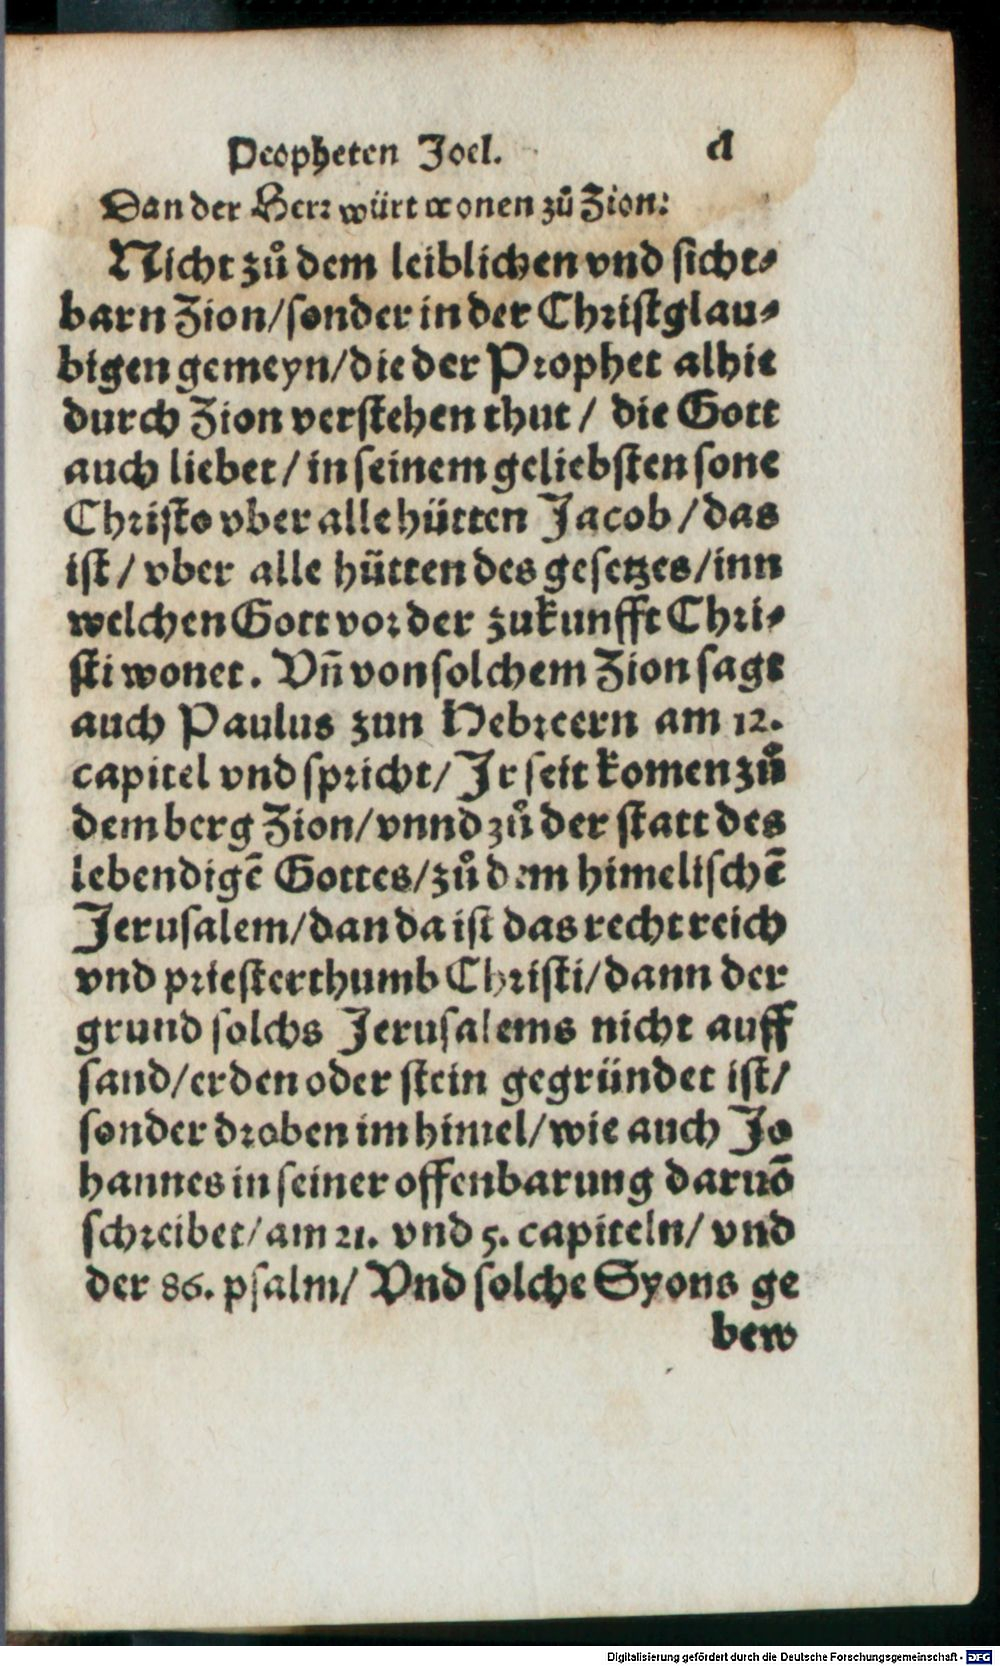 Propheten Joel. cl
Dan der Herr würt wonen zů Zion:
Nicht zů dem leiblichen vnd sicht-
barn Zion/sonder in der Christglau-
bigen gemeyn/die der Prophet alhie
durch Zion verstehen thut/ die Gott
auch liebet/ in seinem geliebsten sone
Christo vber alle hütten Jacob/das
ist/ vber alle hütten des gesetzes/inn
welchen Gott vor der zukunfft Chri-
sti wonet. Vñ von solchem Zion sagt
auch Paulus zun Hebreern am 12.
capitel vnd spricht/ Ir seit komen zů
dem berg Zion/vnnd zů der statt des
lebendigē Gottes/zů dem himelischē
Jerusalem/dan da ist das recht reich
vnd priesterthumb Christi/dann der
grund solchs Jerusalems nicht auff
sand/erden oder stein gegründet ist/
sonder droben im himel/wie auch Jo
hannes in seiner offenbarung daruō
schreibet/am 21. vnd 5. capiteln/ vnd
der 86. psalm/ Vnd solche Syons ge
bew
Digitalisierung gefördert durch die Deutsche Forschungsgemeinschaft - DFG